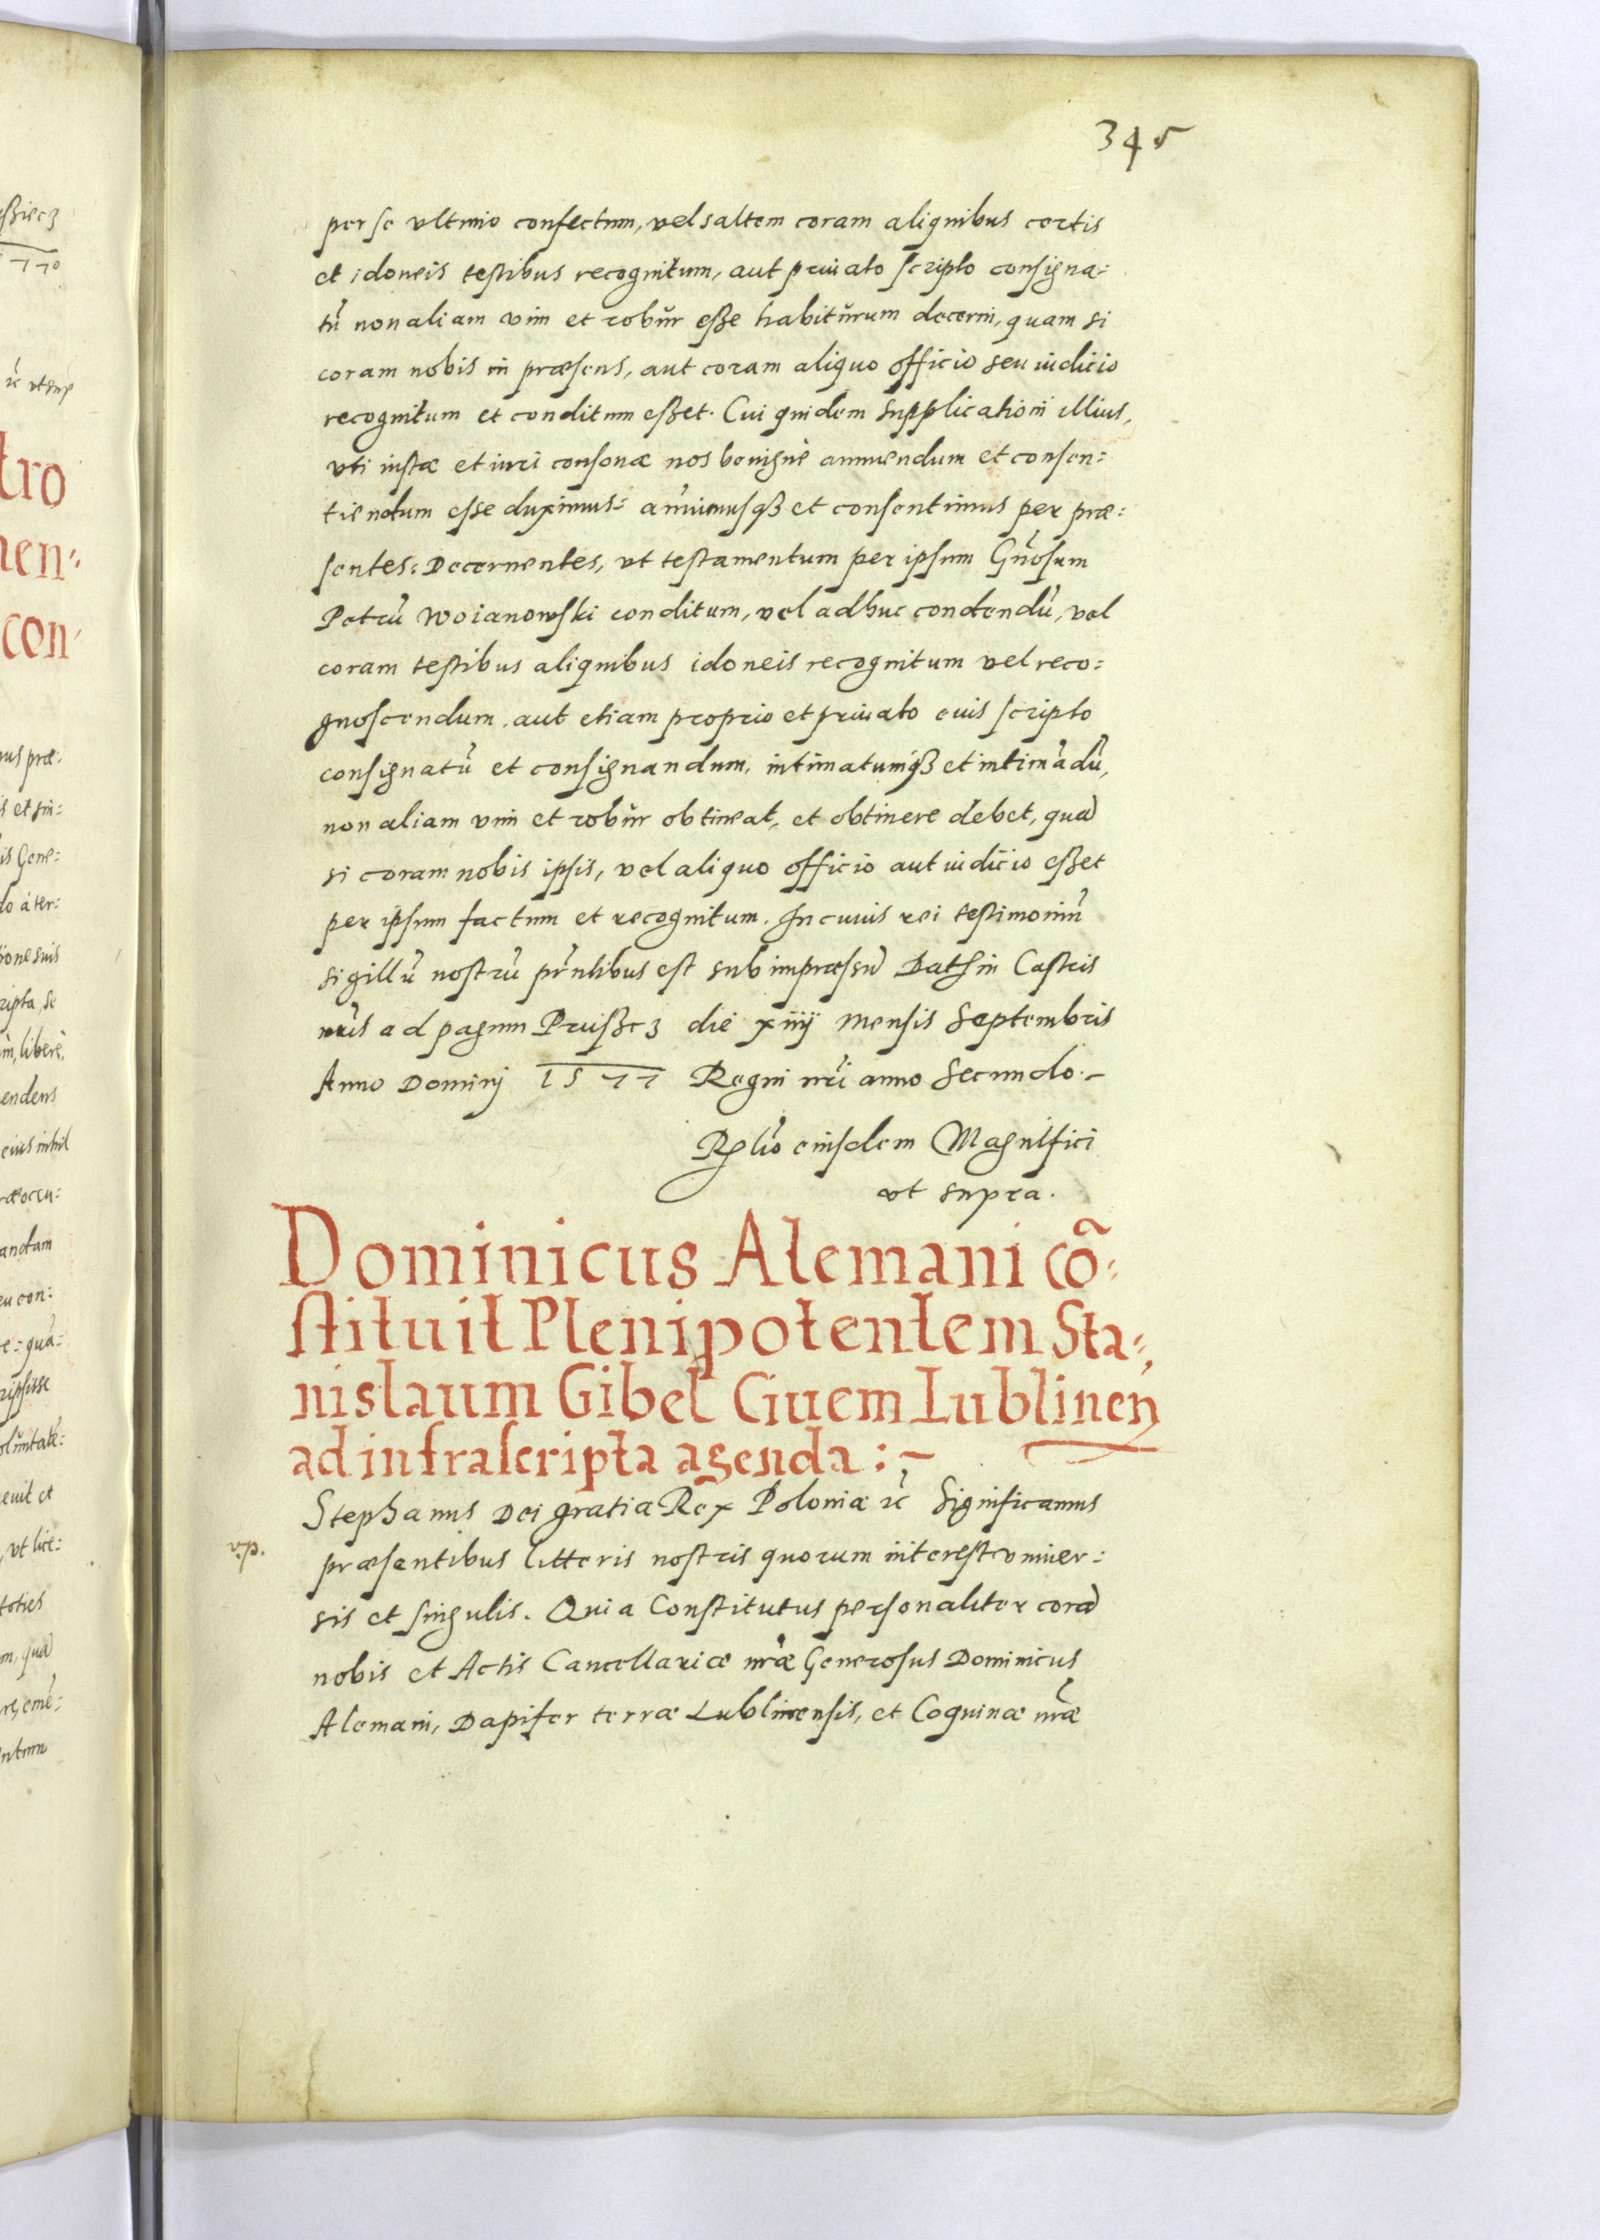 345
per se vltimo confectum, vel saltem coram aliquibus certis
et idoneis testibus recognitum, aut priuato scripto consigna:
tũ non aliam vim et robur eße habiturum decerni, quam si
coram nobis in præsens, aut coram aliquo officio seu iudicio
recognitum et conditum eßet. Cui quidem supplicationi illius,
vti iustæ et iuri consonæ nos benignè annuendum et consen:
tiendum esse duximus: annuimusqȝ et consentimus per præ:
sentes: Decernentes, vt testamentum per ipsum Gnõsum
Petrũ Woianowski conditum, vel adhuc condendũ, vel
coram testibus aliquibus idoneis recognitum vel reco:
gnoscendum, aut etiam proprio et priuato euis scripto
consignatũ et consignandum, intimatumqȝ et intimãdũ,
non aliam vim et robur obtineat, et obtinere debet, quã
si coram nobis ipsis, vel aliquo officio aut iudicio eßet
per ipsum factum et recognitum. In cuius rei testimoniũ
sigillũ nostrũ pñtibus est subimpressũ Dat in Castris
nrĩs ad pagum Prußcz die xiiij Mensis Septembris
Anno Dominj 1577 Regni nrĩ anno Secundo.
Rlõ eiusdem Magnifici
vt supra.
Dominicus Alemani cõ:
stituit Plenipotentem Sta:
nislaum Gibel Ciuem Lublineñ
ad infrascripta agenda:~
Stephanus Dei gratia Rex Poloniæ ꝛc̃ Significamus
v.p.
præsentibus litteris nostris quorum interest vniuer:
sis et singulis. Quia Constitutus personaliter corã
nobis et Actis Cancellariæ nrẽ Generosus Dominicus
Alemani, Dapifer terræ Lublinensis, et Coquinæ nrẽ